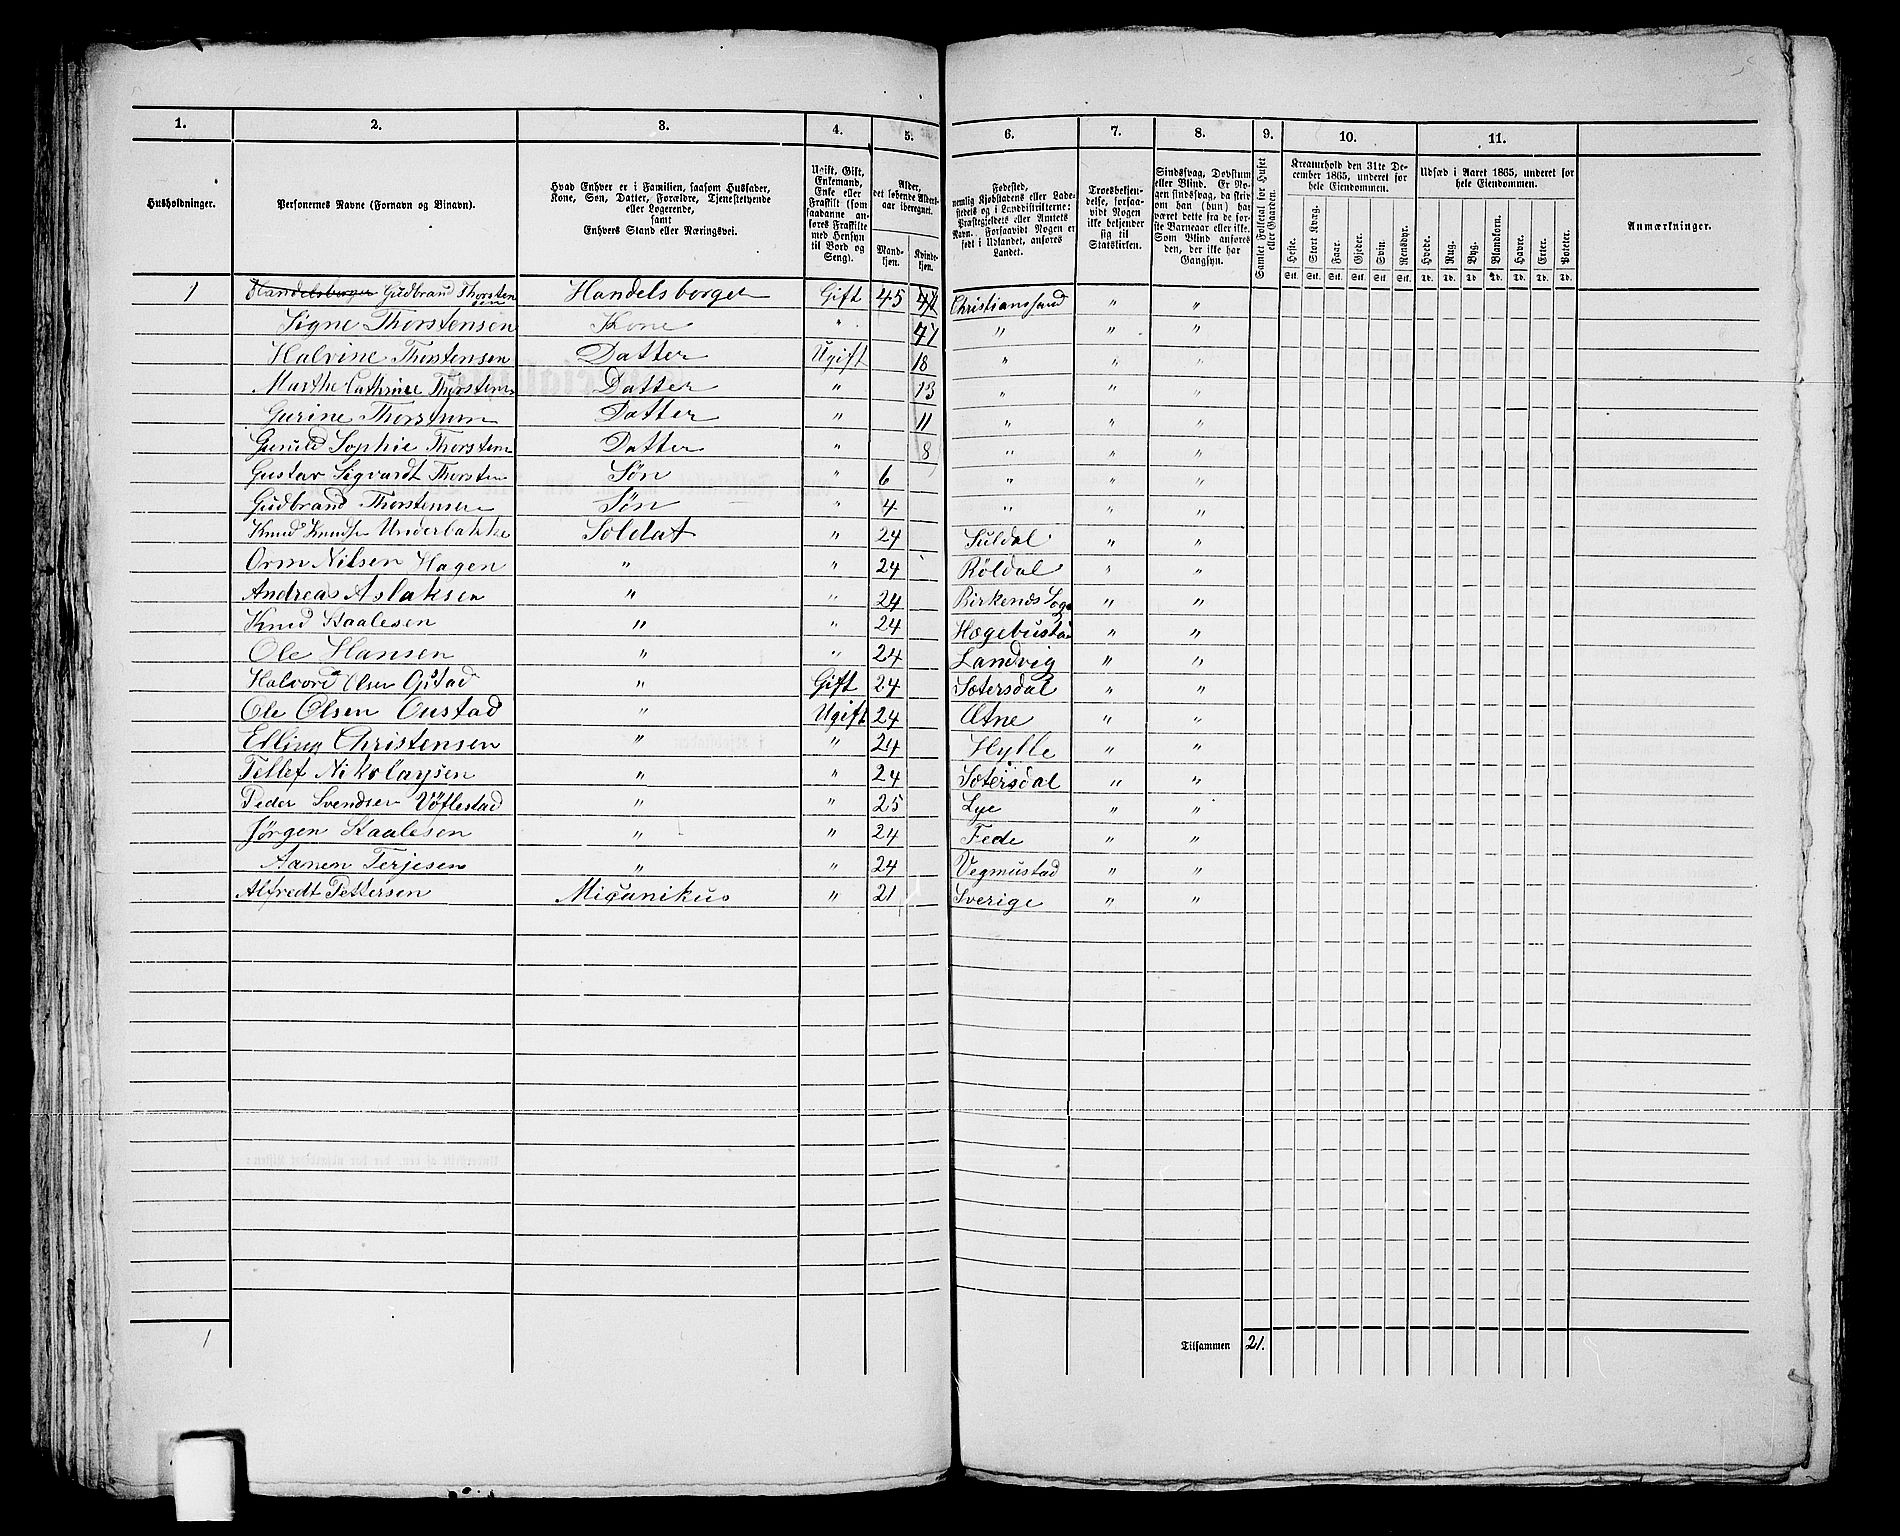 1. 2. 3. 4. 5. 6. 7. 8. 9. 10. 11.
Husholdninger.
Personernes Navne (Fornavn og Binavn).
Hvad Enhver er i Familien, saasom Husfader,
Kone, Søn, Datter, Forældre, Tjenestetyende
eller Logerende,
samt
Enhvers Stand eller Næringsvei.
Ugift, Gift,
Enkemand,
Enke eller
Fraskilt (som
saadanne an-
føres Fraskilte
med Hensyn
til Bord og
Seng).
Alder,
det løbende Alders-
aar iberegnet.
Mand-
kjøn.
Kvinde-
kjøn.
Fødested,
nemlig Kjøbstadens eller Lade-
stedets og i Landdistrikterne:
Præstegjeldets eller Amtets
Navn. Forsaavidt Nogen er
født i Udlandet, anføres
Landet.
Troesbekjen-
delse, forsaa-
vidt Nogen
ikke bekjender
sig til
Statskirken.
Sindssvag, Døvstum
eller Blind. Er No-
gen sindssvag, da skri-
om han (hun) har
været dette fra de før-
ste Barneaar eller ikke.
Som Blind anføres
den, der ikke har
Gangsyn.
Samlet Folketal for Huset
eller Gaarden.
Kreaturhold den 31te De-
cember 1865, underet for
hele Eiendommen.
Heste. Stort Kvæg. Faar. Gjeder. Sviin. Rensdyr.
Stk. Stk. Stk. Stk. Stk. Stk.
Udsæd i Aaret 1865, underet for
hele Eiendommen.
Hvede. Rug. Byg. Blandkorn. Havre. Erter. Poteter.
Td. Td. Td. Td. Td. Td. Td.
Anmærkninger.
1 Handelsborger Gudbrand Thorsten sen Handelsborger Gift 45 Christianssand " "
Signe Thorstensen Kone " 47 " " "
Halvine Thorstensen Datter Ugift 18 " " "
Marthe Cathrine Thorstensen Datter " 13 " " "
Gurine Thorstensen Datter " 11 " " "
Gunild Sophie Thorsten Datter " 8 " " "
Gustav Sigvardt Thorsten Søn " 6 " " "
Gudbrand Thorstensen Søn " 4 " " "
Knud Knudsen Underbakke Soldat " 24 Suldal " "
Orm Nilsen Hagen " " 24 Røldal " "
Andreas Aslaksen " " 24 Birkenes Sogn " "
Knud Staalesen " " 24 Hægebustad " "
Ole Hansen " " 24 Landvig " "
Halvord Olsen Opstad " Gift 24 Sætersdal " "
Ole Olsen Oustad " Ugift 24 Ætne " "
Elling Christensen " " 24 Hylle " "
Tellef Nikolaysen " " 24 Sætersdal " "
Peder Svendsen Vøflestad " " 25 Lye " "
Jørgen Staalesen " " 24 Fede " "
Aanen Terjesen " " 24 Vegmustad " "
Alfredt Pettersen Micanikus " 21 Sverige " "
1 Tilsammen 21.